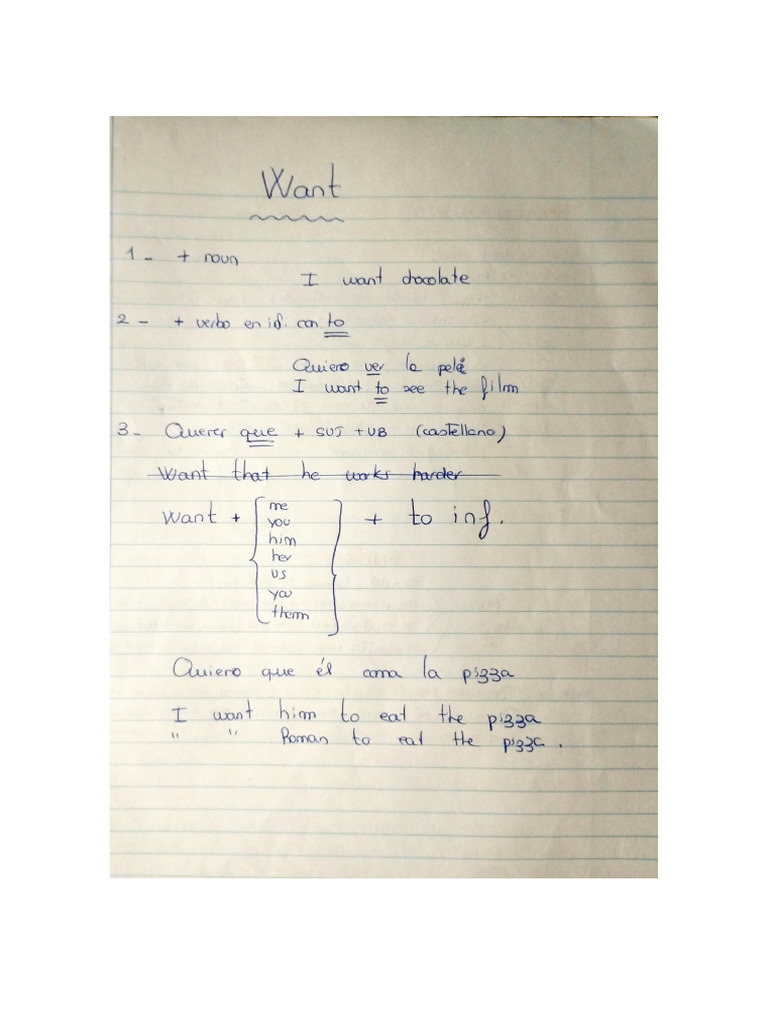 Want
1 - + noun
I want chocolate
2 - + verbo en inf. con to
Quiero ver la pelí
I want to see the film
3 - Querer que + SUJ + VB (castellano)
Want that he works harder
want + me
you
him
her
us
you
them
+ to inf.
Quiero que él coma la pizza
I want him to eat the pizza
" " Roman to eat the pizza.